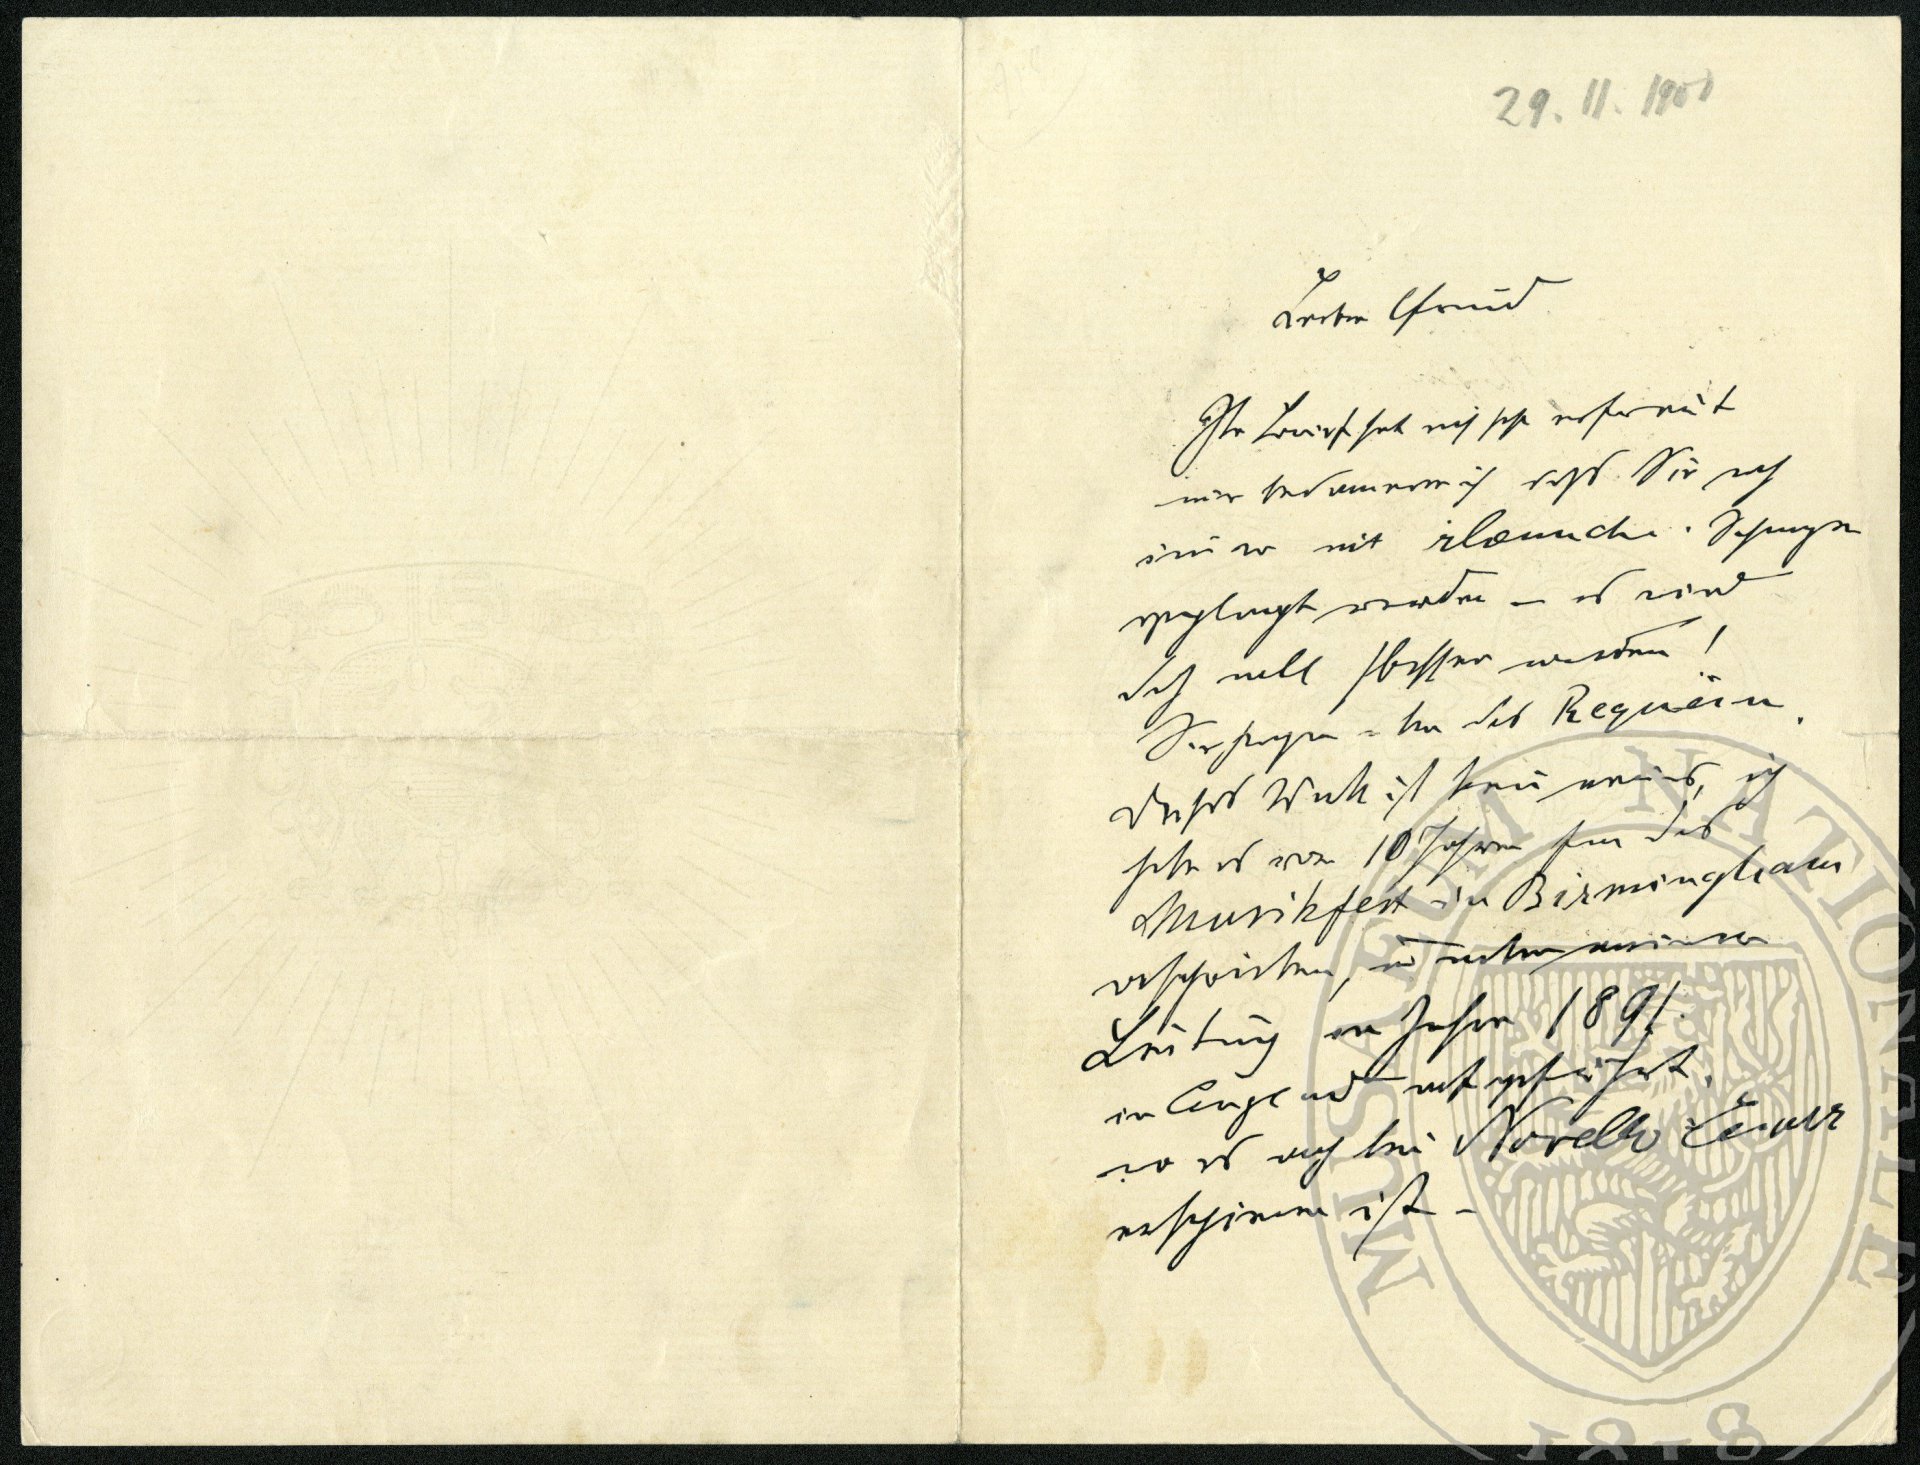 29. 11. 1901
Lieber Freund
Ihr Brief hat mich sehr erfreut
nur bedauere ich daß Sie noch
immer mit Schmerzen
geplagt werden – es wird
doch wohl besser werden!
Sie fragen um das Requiem.
Dieses Werk ist kein neues, ich
habe es vor 10 Jahren für das
Musikfest in Birmingham
geschrieben, und unter meiner
Leitung im Jahre 1891.
in England aufgeführt.
wo es auch bei Novello Ewer
erschienen ist –
MUSEUM NATIONALE
1818